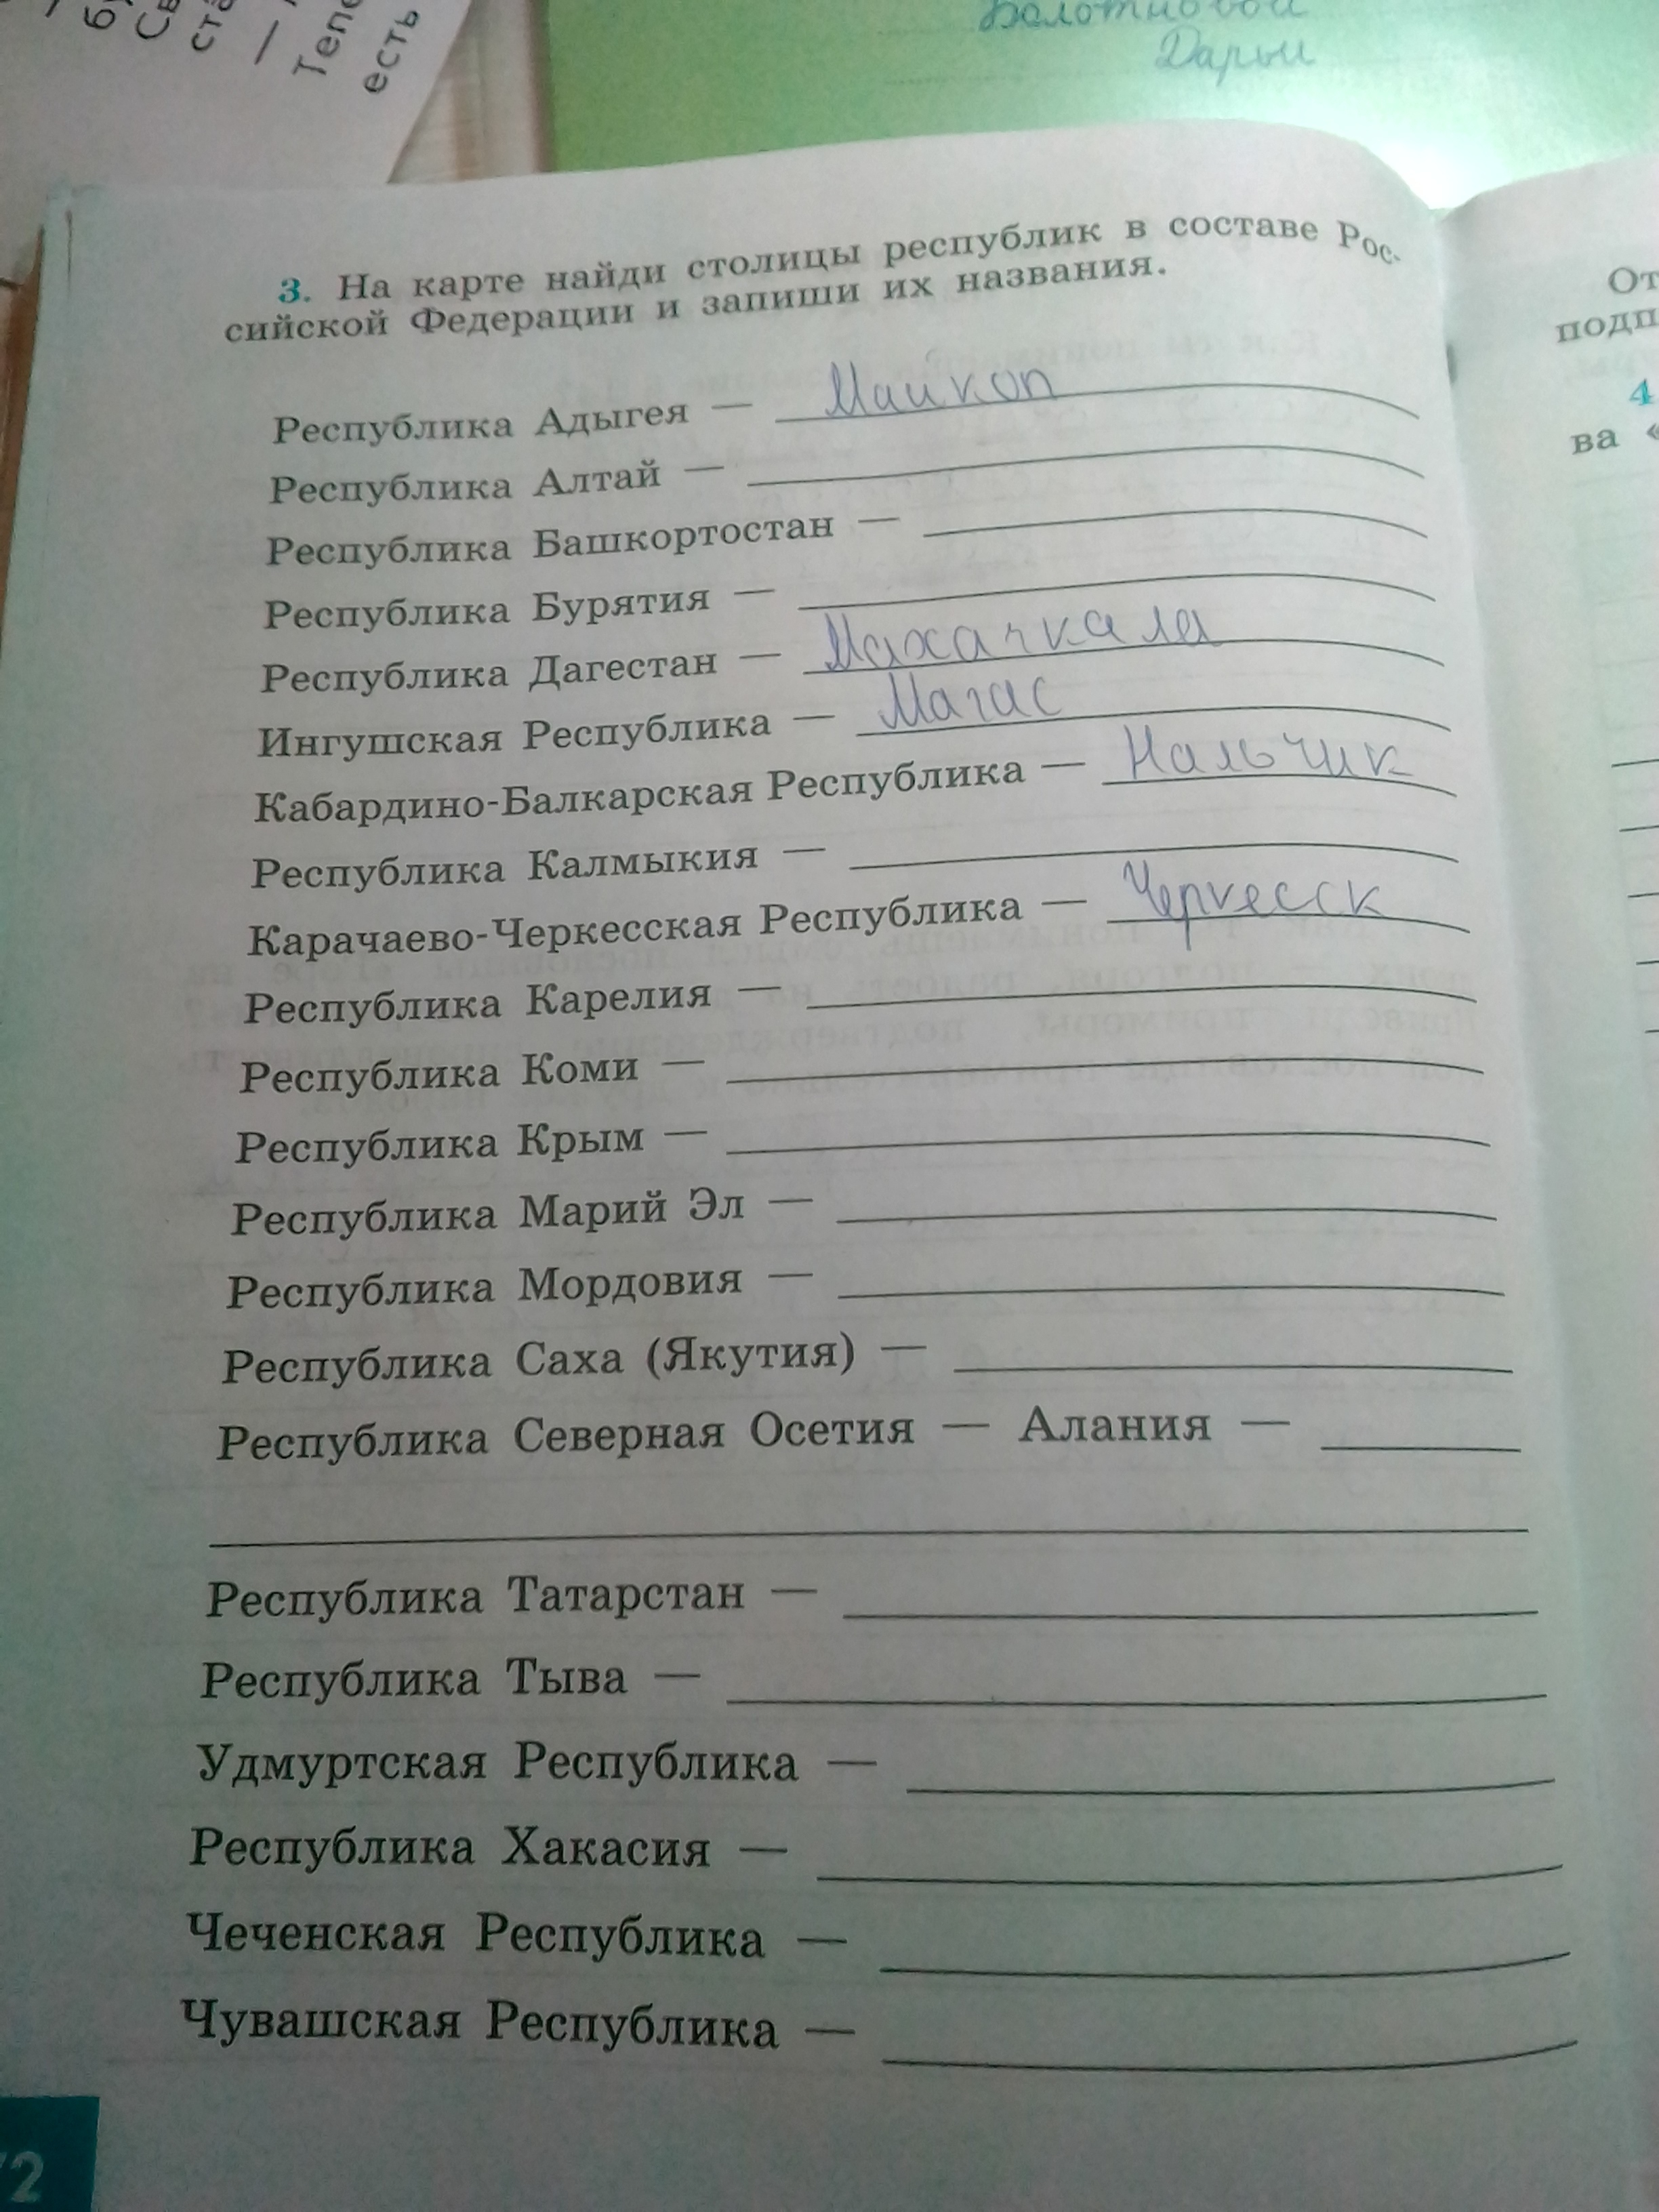 Тепе
есть
Болотниковой
Дарьи
3. На карте найди столицы республик в составе Рос-
сийской Федерации и запиши их названия.
Республика Адыгея — Маикоп
Республика Алтай —
Республика Башкортостан —
Республика Бурятия —
Республика Дагестан — Махачкала
Ингушская Республика — Магас
Кабардино-Балкарская Республика — Нальчик
Республика Калмыкия —
Карачаево-Черкесская Республика — Черкесск
Республика Карелия —
Республика Коми —
Республика Крым —
Республика Марий Эл —
Республика Мордовия —
Республика Саха (Якутия) —
Республика Северная Осетия — Алания —
Республика Татарстан —
Республика Тыва —
Удмуртская Республика —
Республика Хакасия —
Чеченская Республика —
Чувашская Республика —
От
подп
4
ва «